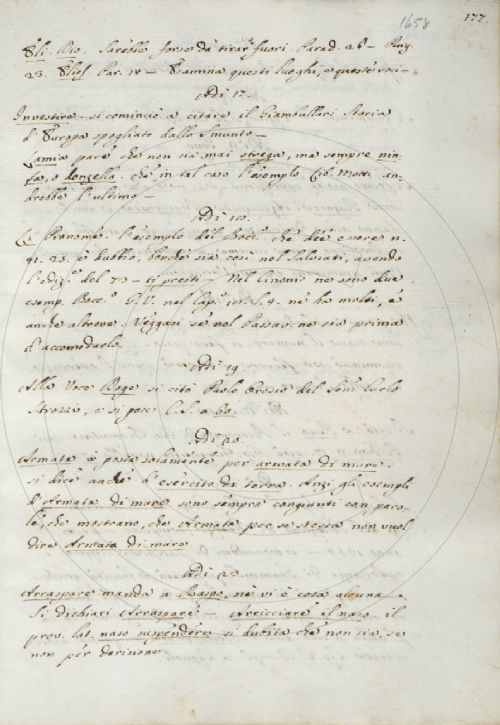 1658
177.
Eli. Dio. Sarebbe forse da tirar fuori. Parad. 26 – Purg.
23. Elios. Par. 14 – Esamina questi luoghi, e queste voci –
Adi 17.
Investire. si cominciò a citare il Giambullari Storia
d'Europa spogliato dallo Smunto –
Lamia pare che non sia mai strega, ma sempre nin-
fa, o donzella. che in tal caso l'esemplo Lib. Mott. an-
drebbe l'ultimo –
Adi 18.
Pronome. l'esemplo del Bocc. che dee essere n.
41. 23. è dubbio, benchè sia così nel Salviati, avendo
l'ediz.e del 73 – ti presti – Nel Cinonio ne sono due
esemp. Bocc. e G.V. nel Cap. 101. §. 4. ne ha molti, e
anche altrove. Veggasi se nel Passav. ne sia prima
d'accomodarlo.
Adi 19
Alla Voce Rege si citi Paolo Orosio del Sen. Carlo
Strozzi, e si pose C. S. a 60.
Adi 20.
Armata è posta solamente per armata di mare.
si dice anche d'esercito da terra. Anzi gli esempli
d'Armata di mare sono sempre congiunti con paro-
le, che mostrano, che Armata per se stessa non vuol
dire Armata di mare.
Adi 23.
Arraspare manda a Raspo, ne vi è cosa alcuna.
Si dichiari Arraspare – Arricciare il naso. il
prov. lat. naso suspendere si dubita che non sia, se
non per derisione.